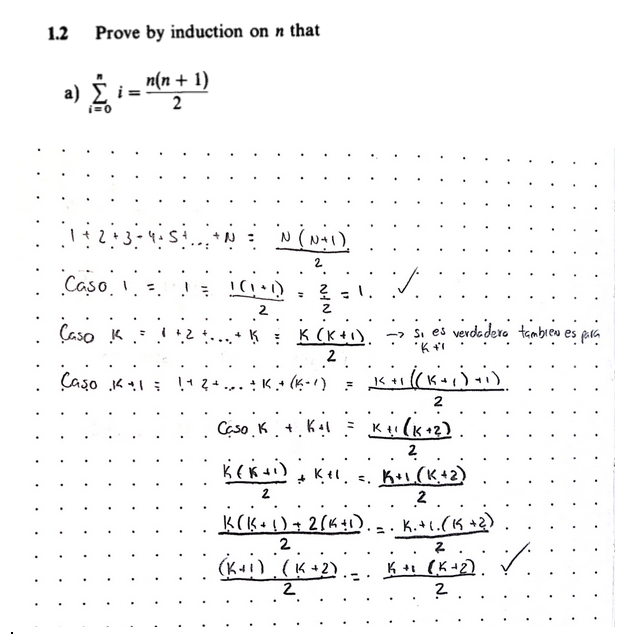 1.2 Prove by induction on n that
a) ∑_{i=0}^{n} i = n(n + 1)/2
1 + 2 + 3 + 4 + 5 + ... + N = N (N+1)/2
Caso 1 = 1 = 1(1+1)/2 = 2/2 = 1. ✓
Caso K = 1 + 2 + ... + K = K (K+1)/2 → Si es verdadero tambien es para K+1
Caso K+1 = 1 + 2 + ... + K + (K-1) = K+1 ((K+1)+1)/2
Caso K + K+1 = K+1 (K+2)/2
K(K+1)/2 + K+1 = K+1 (K+2)/2
K(K+1) + 2(K+1)/2 = K+1 (K+2)/2
(K+1) (K+2)/2 = K+1 (K+2)/2 ✓